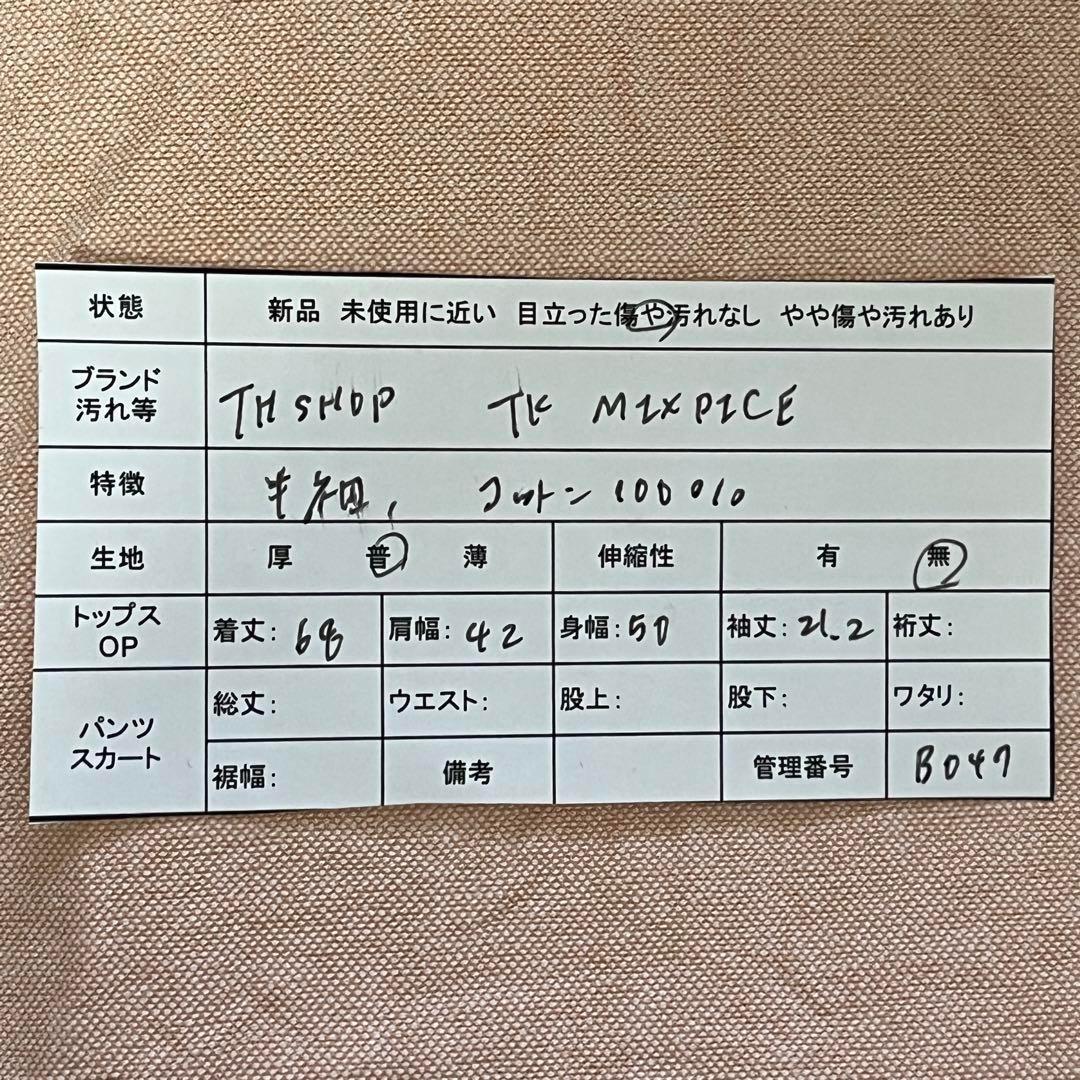 状態 新品 未使用に近い 目立った傷や汚れなし やや傷や汚れあり
ブランド
汚れ等
TH SHOP TK MIXPICE
特徴 コットン 100%
生地 厚 普 薄 伸縮性 有 無
トップス
OP
着丈: 68 肩幅: 42 身幅: 50 袖丈: 21.2 裄丈:
パンツ
スカート
総丈: ウエスト: 股上: 股下: ワタリ:
裾幅: 備考 管理番号 B047